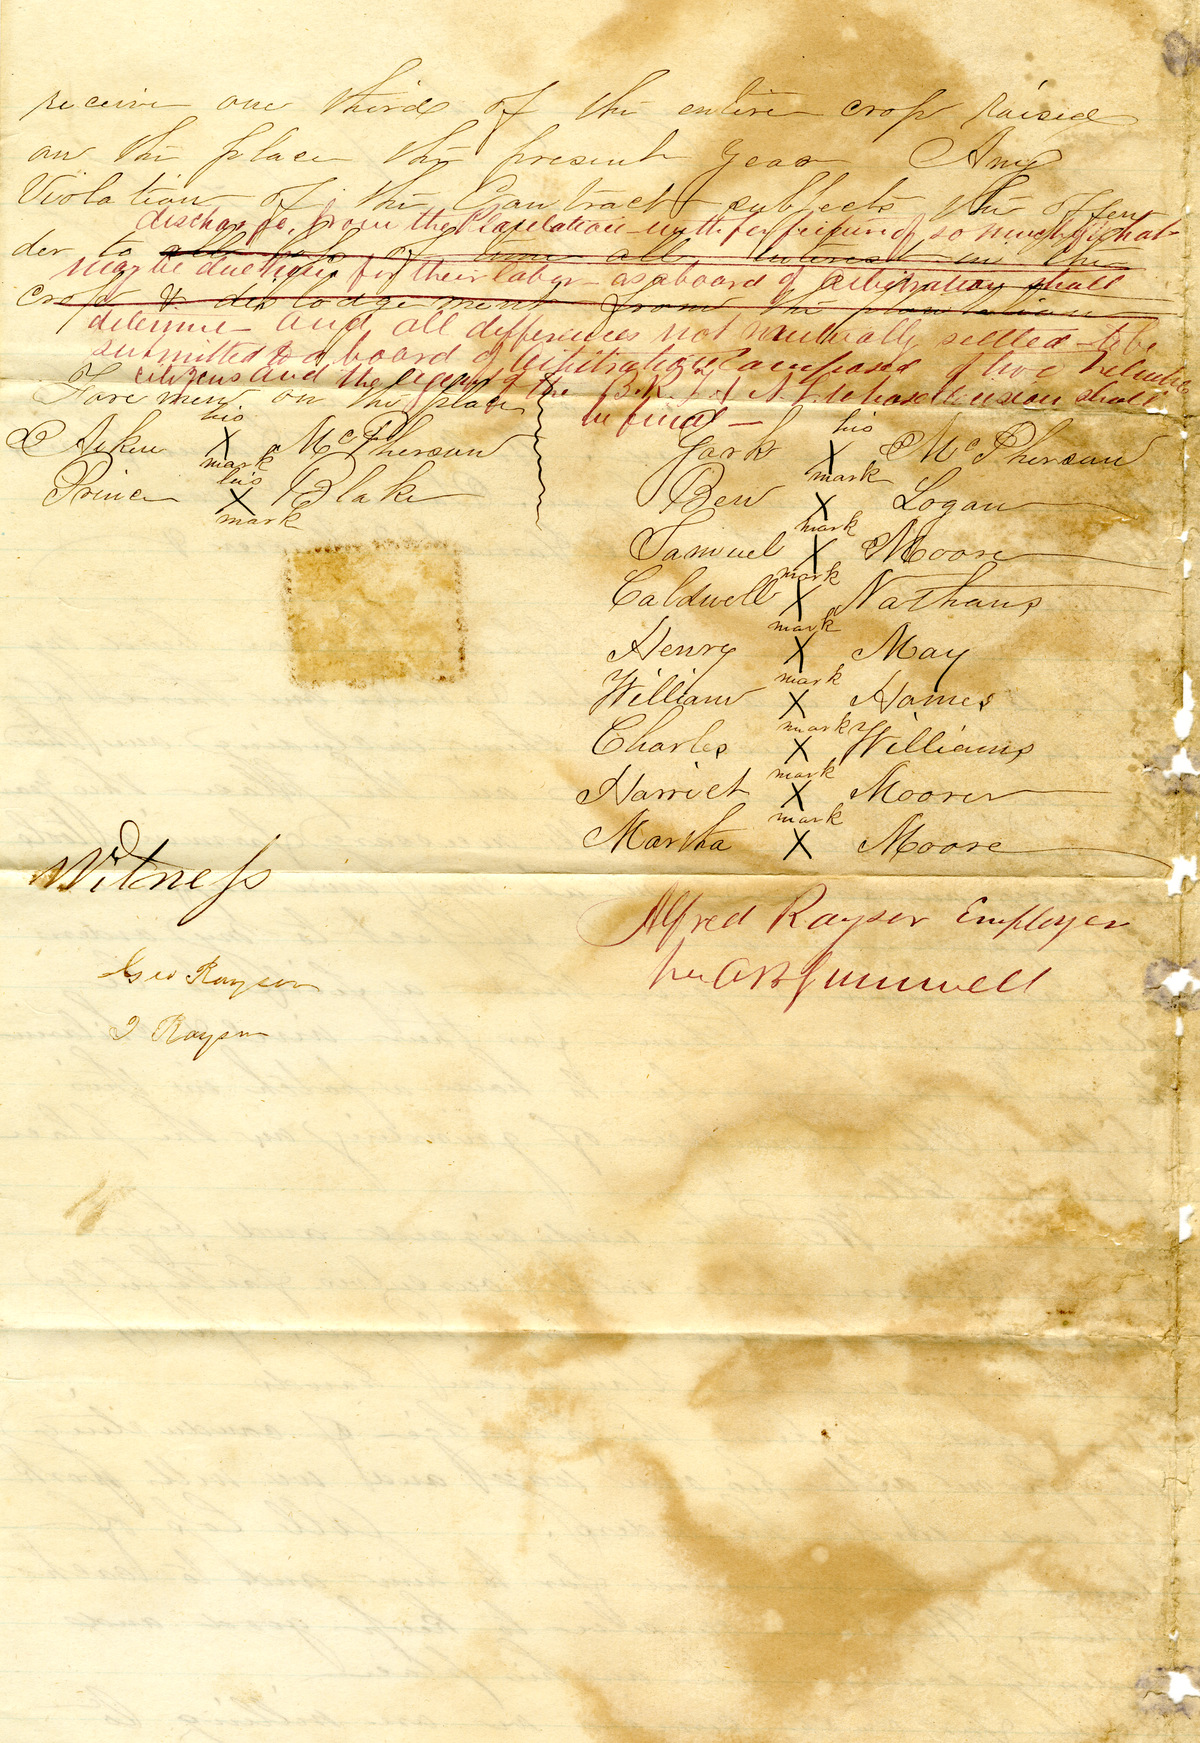 receive one third of the entire crop raised
on the place the present year Any
Violation of the Contract subjects the offen
discharge from the Plantation with forfeiture of so much of what
der to all interest in the
may be due them for their labor as a board of arbitration shall
crop & dislodgement from the plantation
determine and all differences not mutually settled to be
submitted to a board of Arbitration Composed of two
citizens and the agent of the B.R.F. & A.L. whose decision shall
be final
Fore men on the place
his
Aiken X McPherson
mark
his
Prince X Blake
mark
his
York X McPherson
mark
Ben X Logan
mark
Samuel X Moore
mark
Caldwell X Nathans
mark
Henry X May
mark
William X Homes
mark
Charles X Williams
mark
Harriet X Moorer
mark
Martha X Moore
Witness
Geo Raysor
J Raysor
Alfred Raysor Employer